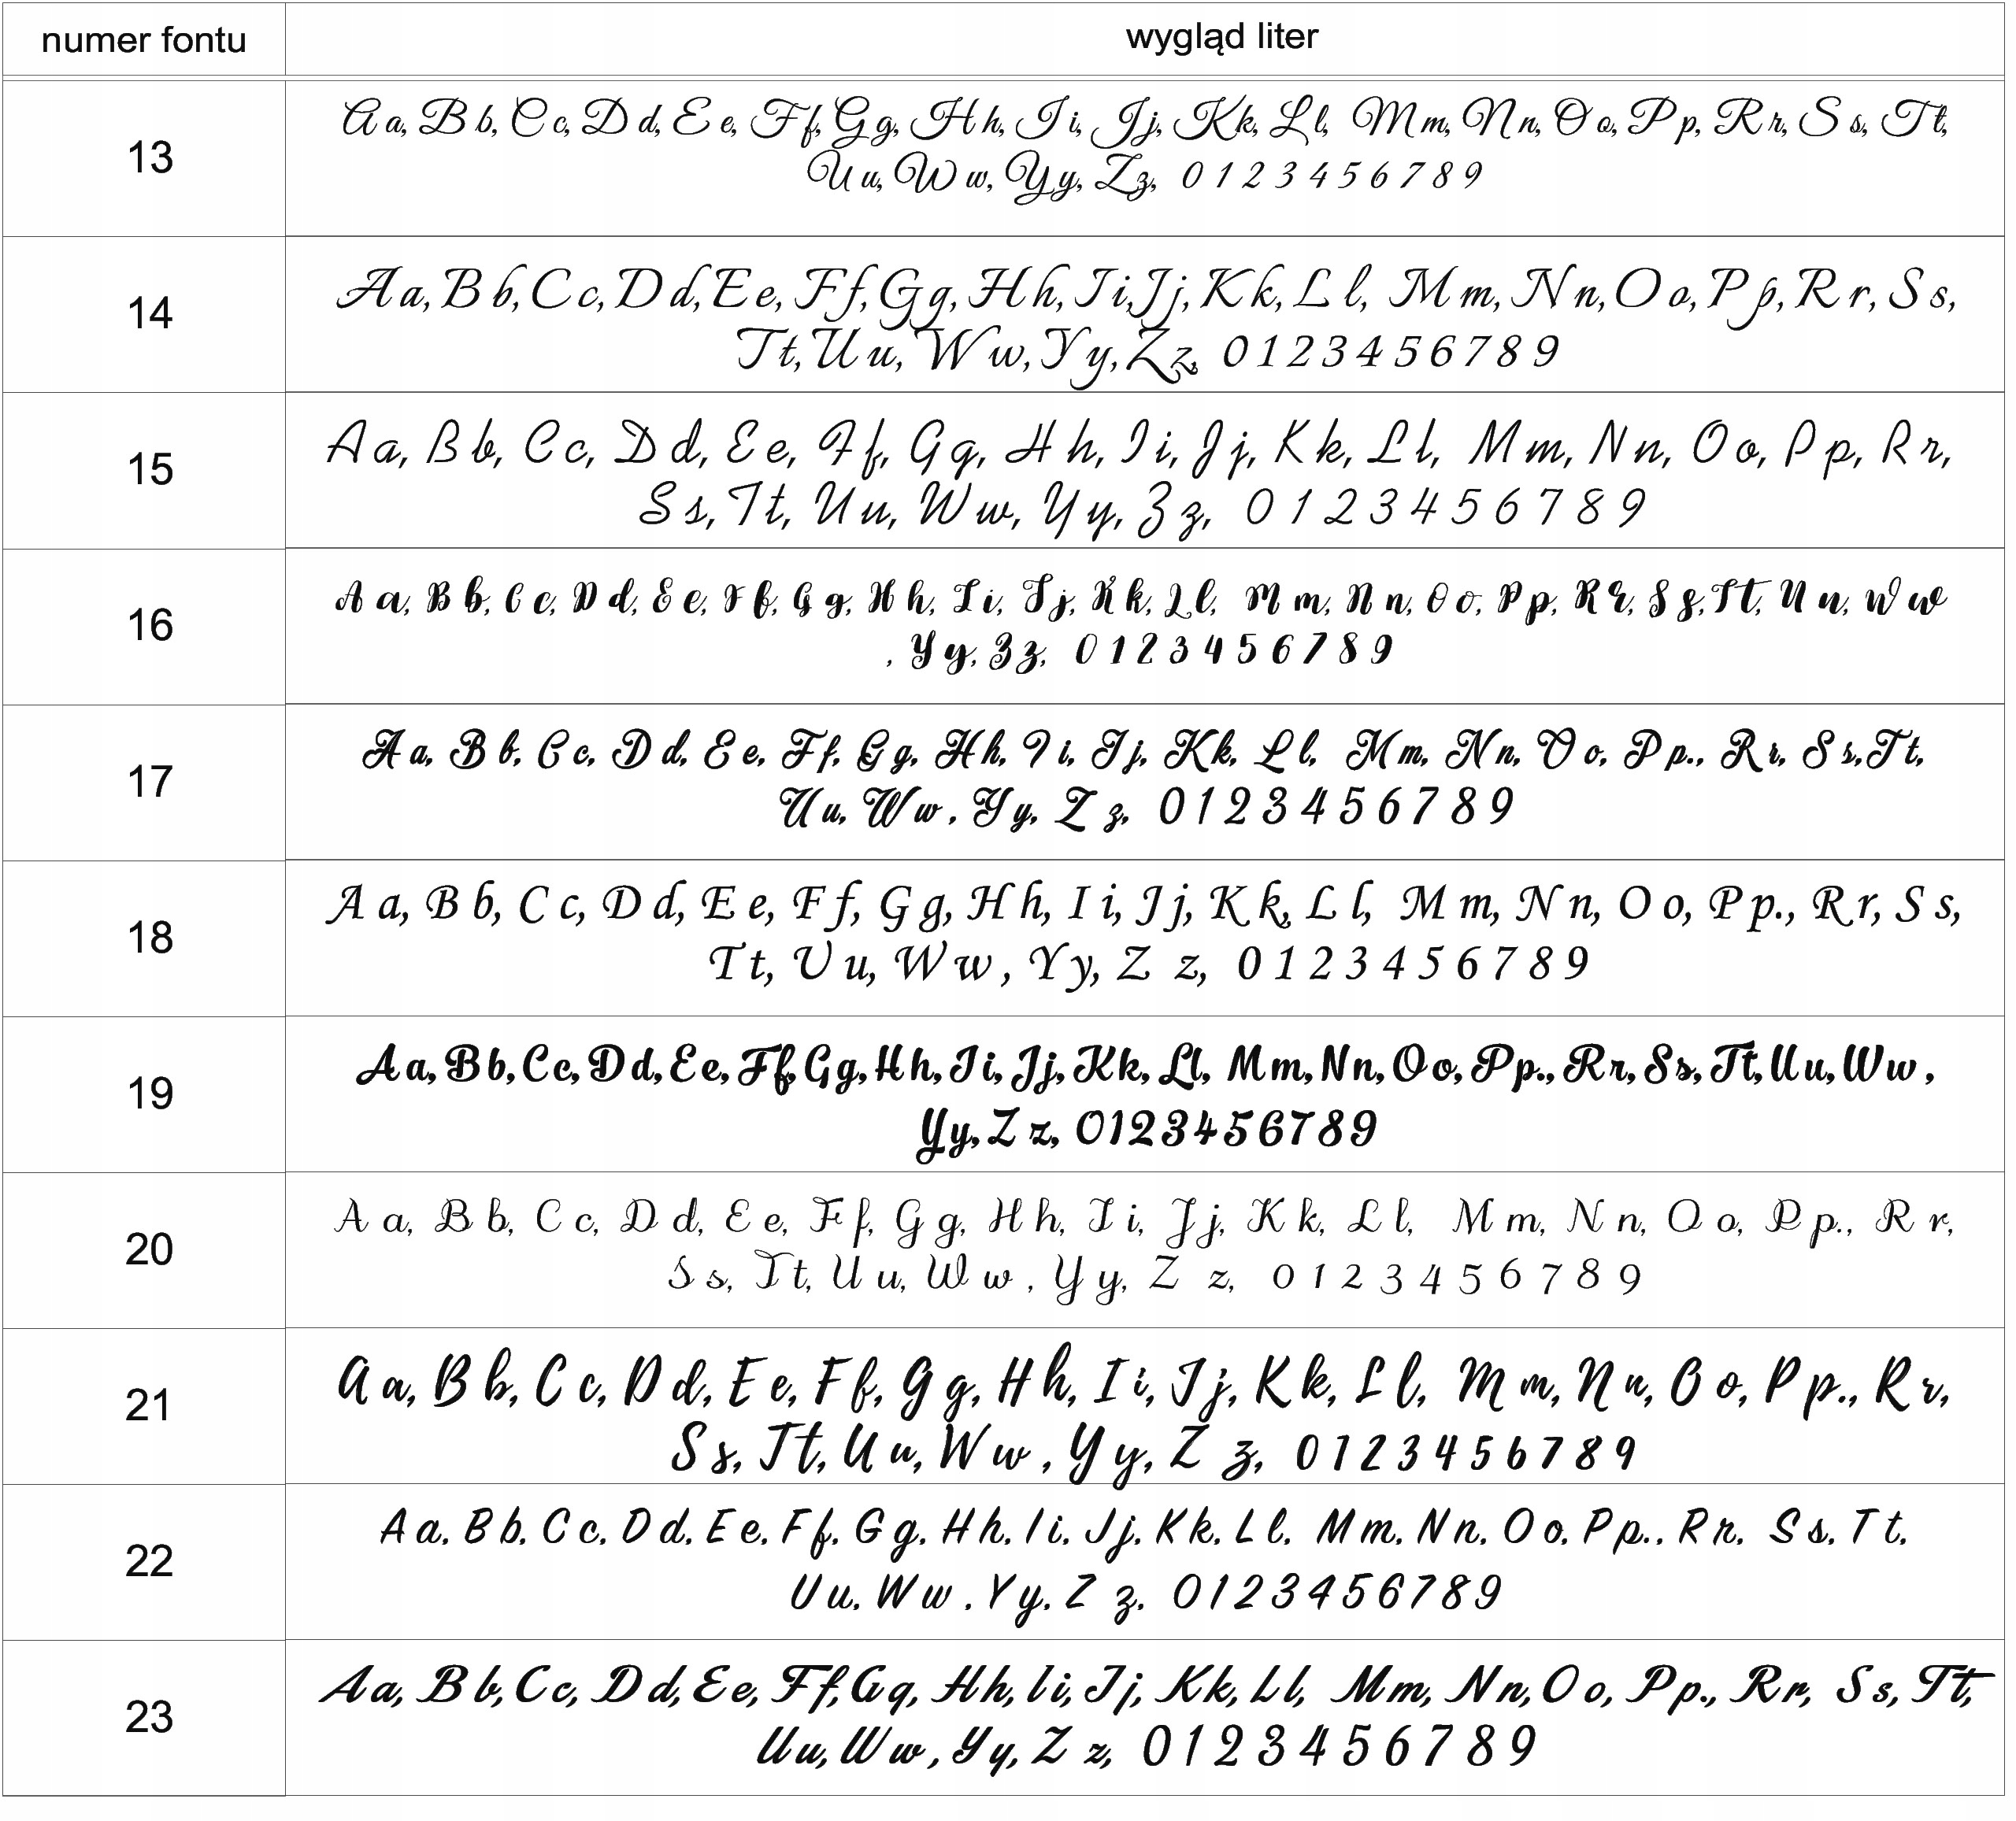 numer fontu wygląd liter
13
Aa, Bb, Cc, Dd, Ee, Ff, Gg, Hh, Ii, Jj, Kk, Ll, Mm, Nn, Oo, Pp, Rr, Ss, Tt,
Uu, Ww, Yy, Zz, 0 1 2 3 4 5 6 7 8 9
14
Aa, Bb, Cc, Dd, Ee, Ff, Gg, Hh, Ii, Jj, Kk, Ll, Mm, Nn, Oo, Pp, Rr, Ss,
Tt, Uu, Ww, Yy, Zz, 0 1 2 3 4 5 6 7 8 9
15
Aa, Bb, Cc, Dd, Ee, Ff, Gg, Hh, Ii, Jj, Kk, Ll, Mm, Nn, Oo, Pp, Rr,
Ss, Tt, Uu, Ww, Yy, Zz, 0 1 2 3 4 5 6 7 8 9
16
A a, B b, C c, D d, E e, F f, G g, H h, I i, J j, K k, L l, M m, N n, O o, P p, R r, S s, T t, U u, W w
, Y y, Z z, 0 1 2 3 4 5 6 7 8 9
17
A a, B b, C c, D d, E e, F f, G g, H h, I i, J j, K k, L l, M m, N n, O o, P p., R r, S s, T t,
U u, W w , Y y, Z z, 0 1 2 3 4 5 6 7 8 9
18
A a, B b, C c, D d, E e, F f, G g, H h, I i, J j, K k, L l, M m, N n, O o, P p., R r, S s,
T t, U u, W w , Y y, Z z, 0 1 2 3 4 5 6 7 8 9
19
A a, B b, C c, D d, E e, F f, G g, H h, I i, J j, K k, L l, M m, N n, O o, P p., R r, S s, T t, U u, W w ,
Y y, Z z, 0 1 2 3 4 5 6 7 8 9
20
A a, B b, C c, D d, E e, F f, G g, H h, I i, J j, K k, L l, M m, N n, O o, P p., R r,
S s, T t, U u, W w , Y y, Z z, 0 1 2 3 4 5 6 7 8 9
21
A a, B b, C c, D d, E e, F f, G g, H h, I i, J j, K k, L l, M m, N n, O o, P p., R r,
S s, T t, U u, W w , Y y, Z z, 0 1 2 3 4 5 6 7 8 9
22
A a, B b, C c, D d, E e, F f, G g, H h, I i, J j, K k, L l, M m, N n, O o, P p., R r, S s, T t,
U u, W w , Y y, Z z, 0 1 2 3 4 5 6 7 8 9
23
A a, B b, C c, D d, E e, F f, G g, H h, I i, J j, K k, L l, M m, N n, O o, P p., R r, S s, T t,
U u, W w , Y y, Z z, 0 1 2 3 4 5 6 7 8 9